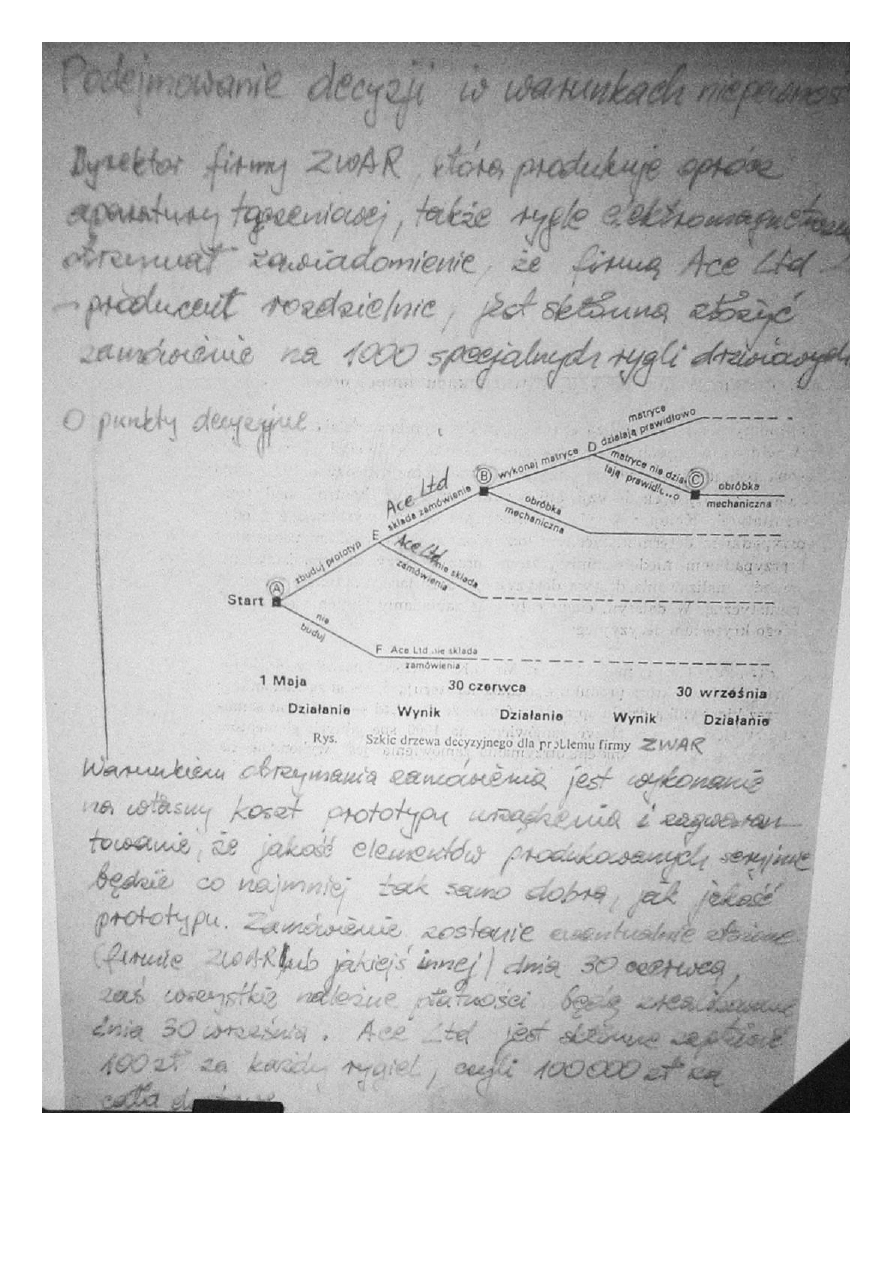 Podejmowanie decyzji w warunkach niepewnoś
Dyrektor firmy ZWAR, która produkuje oprócz
aparatury łączeniowej, także rygle elektromagnetyczn
otrzymał zawiadomienie, że firma Ace Ltd -
- producent rozdzielnic, jest skłonna złożyć
zamówienie na 1000 specjalnych rygli drzwiowych
O punkty decyzyjne.
matryce
działają prawidłowo
D
wykonaj matryce
matryce nie dzia-
łają prawidł...o
C
obróbka
mechaniczna
B
obróbka
mechaniczna
Ace Ltd
składa zamówienie
E
Ace Ltd
nie składa
zamówienia
zbuduj prototyp
A
Start
nie
buduj
F Ace Ltd nie składa
zamówienia
1 Maja 30 czerwca 30 września
Działanie Wynik Działanie Wynik Działanie
Rys. Szkic drzewa decyzyjnego dla problemu firmy ZWAR
Warunkiem otrzymania zamówienia jest wykonanie
na własny koszt prototypu urządzenia i zagwaran-
towanie, że jakość elementów produkowanych seryjnie
będzie co najmniej tak samo dobra, jak jakość
prototypu. Zamówienie zostanie ewentualnie złożone
(firmie ZWAR lub jakiejś innej) dnia 30 czerwca,
zaś wszystkie należne płatności będą zrealizowane
dnia 30 września. Ace Ltd jest skłonne zapłacić
100 zł za każdy rygiel, czyli 100 000 zł za
całą